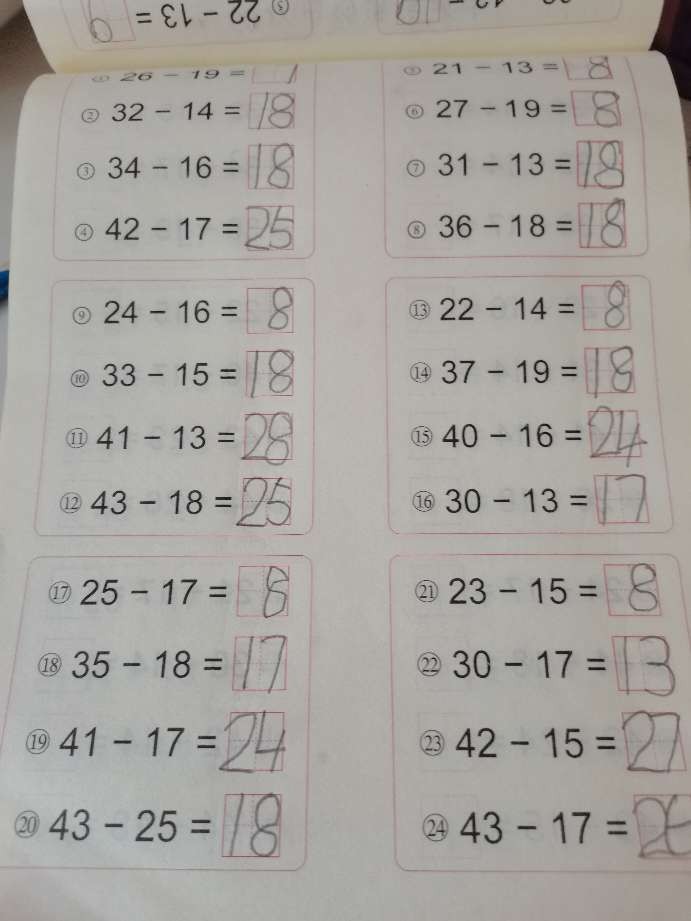 ⑤ 22 - 13 =
① 26 - 19 = 7
② 32 - 14 = 18
③ 34 - 16 = 18
④ 42 - 17 = 25
⑤ 21 - 13 = 8
⑥ 27 - 19 = 8
⑦ 31 - 13 = 18
⑧ 36 - 18 = 18
⑨ 24 - 16 = 8
⑩ 33 - 15 = 18
⑪ 41 - 13 = 28
⑫ 43 - 18 = 25
⑬ 22 - 14 = 8
⑭ 37 - 19 = 18
⑮ 40 - 16 = 24
⑯ 30 - 13 = 17
⑰ 25 - 17 = 8
⑱ 35 - 18 = 17
⑲ 41 - 17 = 24
⑳ 43 - 25 = 18
㉑ 23 - 15 = 8
㉒ 30 - 17 = 13
㉓ 42 - 15 = 27
㉔ 43 - 17 = 26